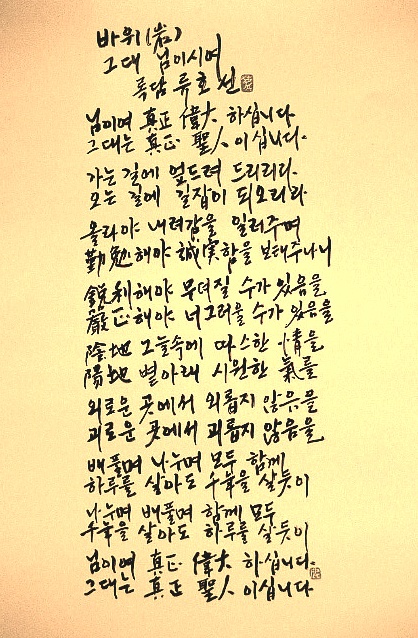 바위(岩)
그대 님이시여
록담 류호선
님이여 真正 偉大 하십니다
그대는 真正 聖人 이십니다.
가는 길에 엎드려 드리리다
오는 길에 길잡이 되오리라
올라야 내려감을 일러주며
勤勉해야 誠実함을 보태주나니
鋭利해야 무뎌질 수가 있음을
嚴正해야 너그러울 수가 있음을
陰地 그늘속에 따스한 情을
陽地 볕아래 시원한 氣를
외로운 곳에서 외롭지 않음을
괴로운 곳에서 괴롭지 않음을
배풀며 나누며 모두 함께
하루를 살아도 千年을 살듯이
나누며 배풀며 함께 모두
千年을 살아도 하루를 살듯이
님이여 真正 偉大 하십니다.
그대는 真正 聖人 이십니다